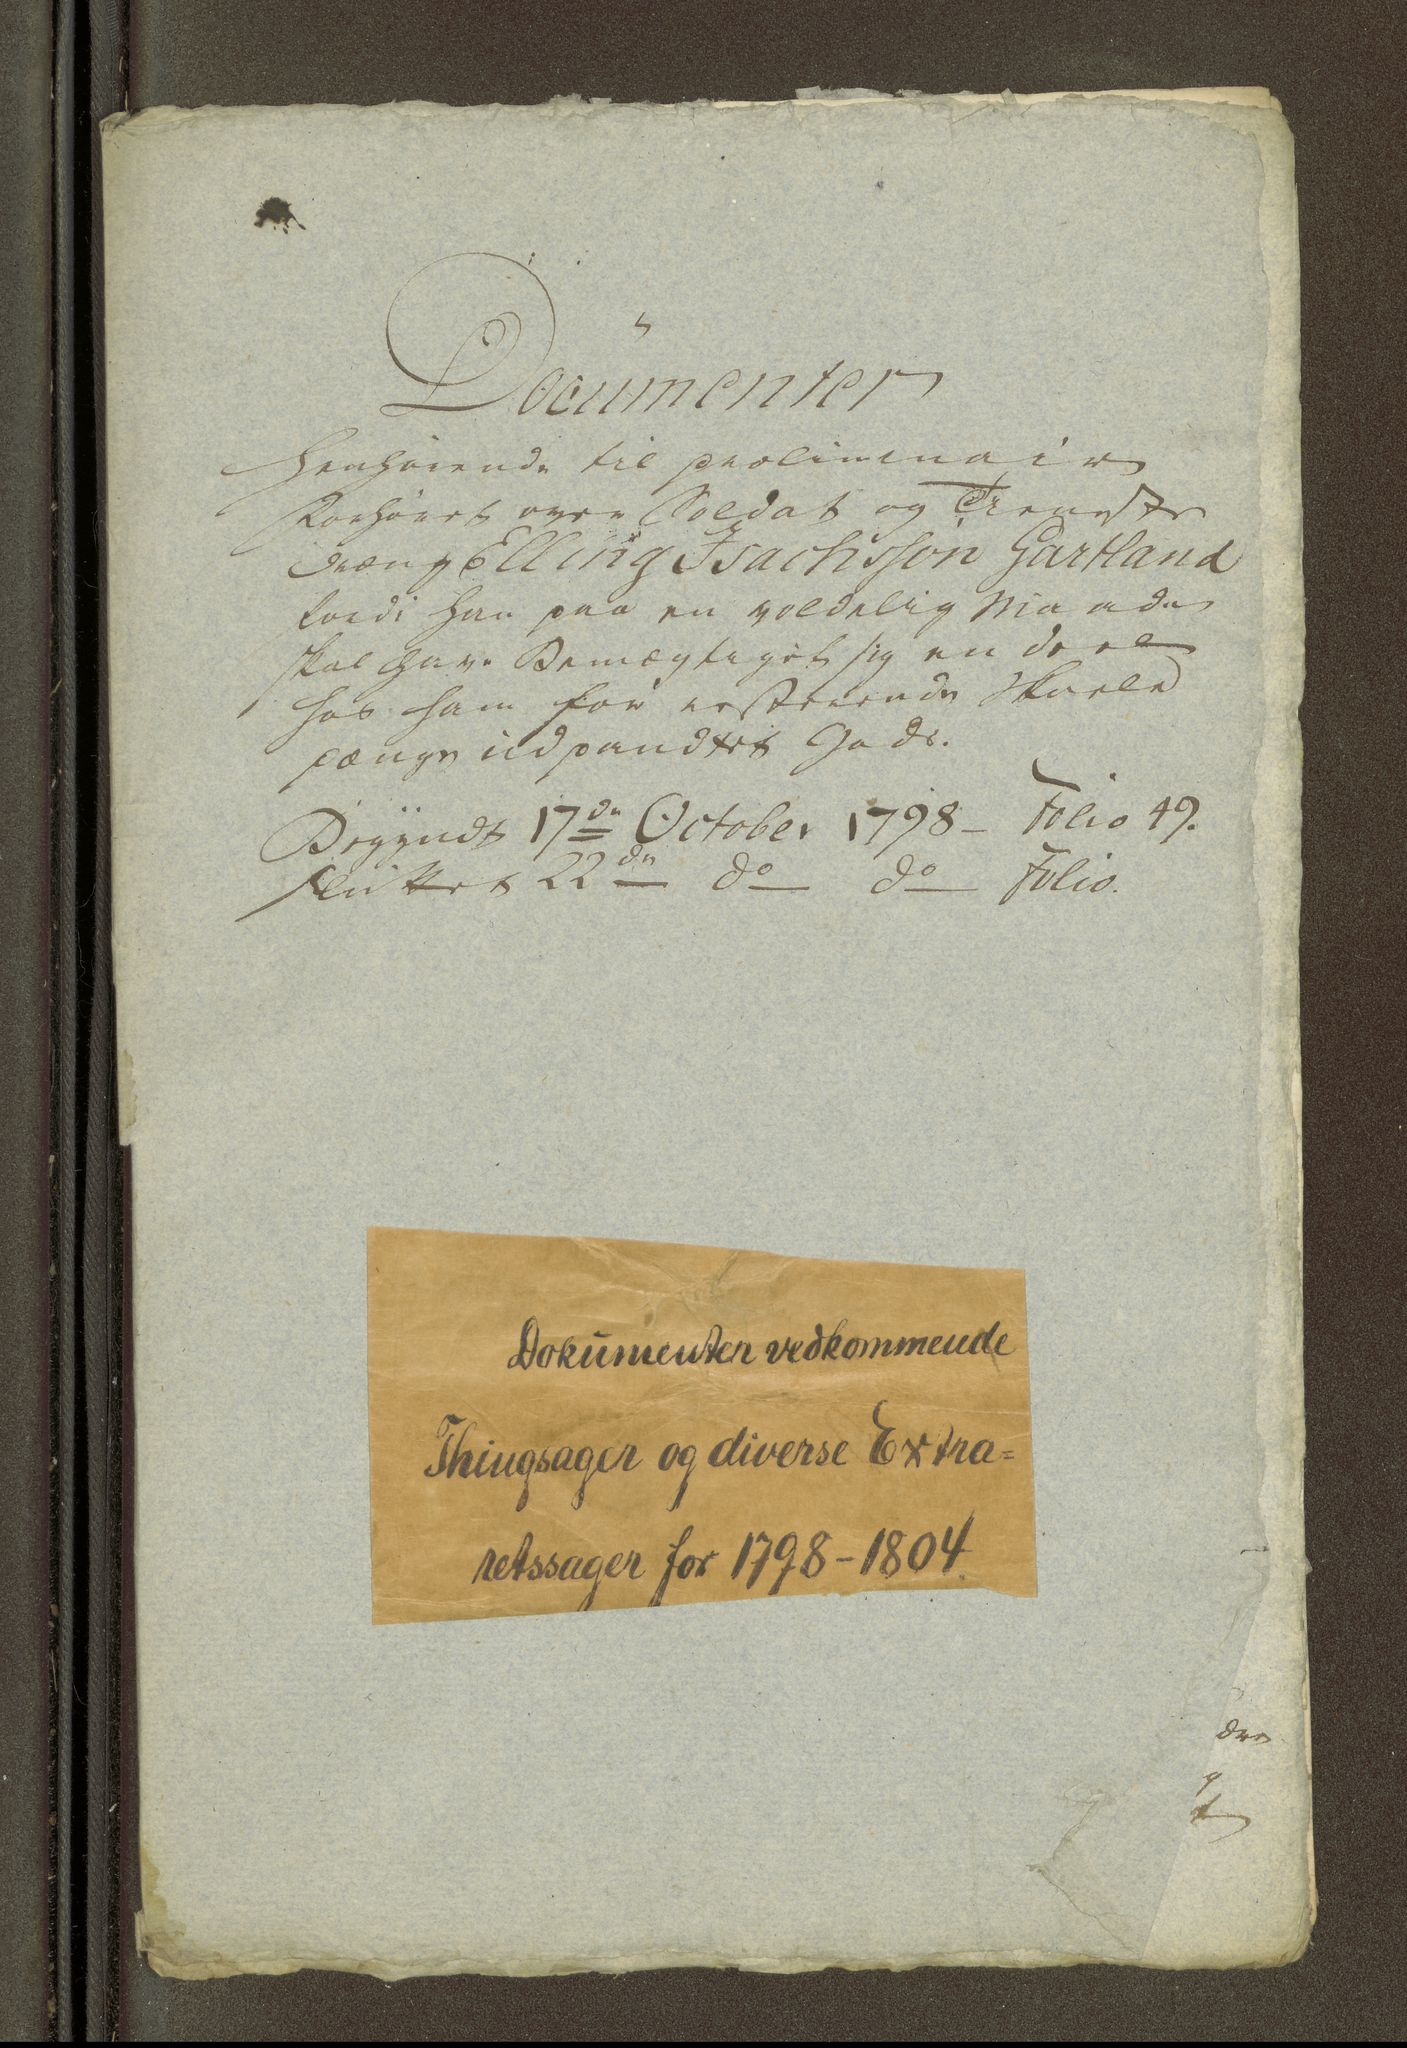 Documenter
henhørende til præliminair
Forhøret over Soldat og Tieneste
dræng Elling Isachsson Gartland
fordi han paa en voldelig Maade
skal have Bemægtiget sig en deel
hos ham for resterende Skole
pænge udpandtet Gods.
Begyndt 17de October 1798 – Folio 49.
Sluttet 22de do do Folio.
Dokumenter vedkommende
Thingsager og diverse Extra=
retssager for 1798-1804.